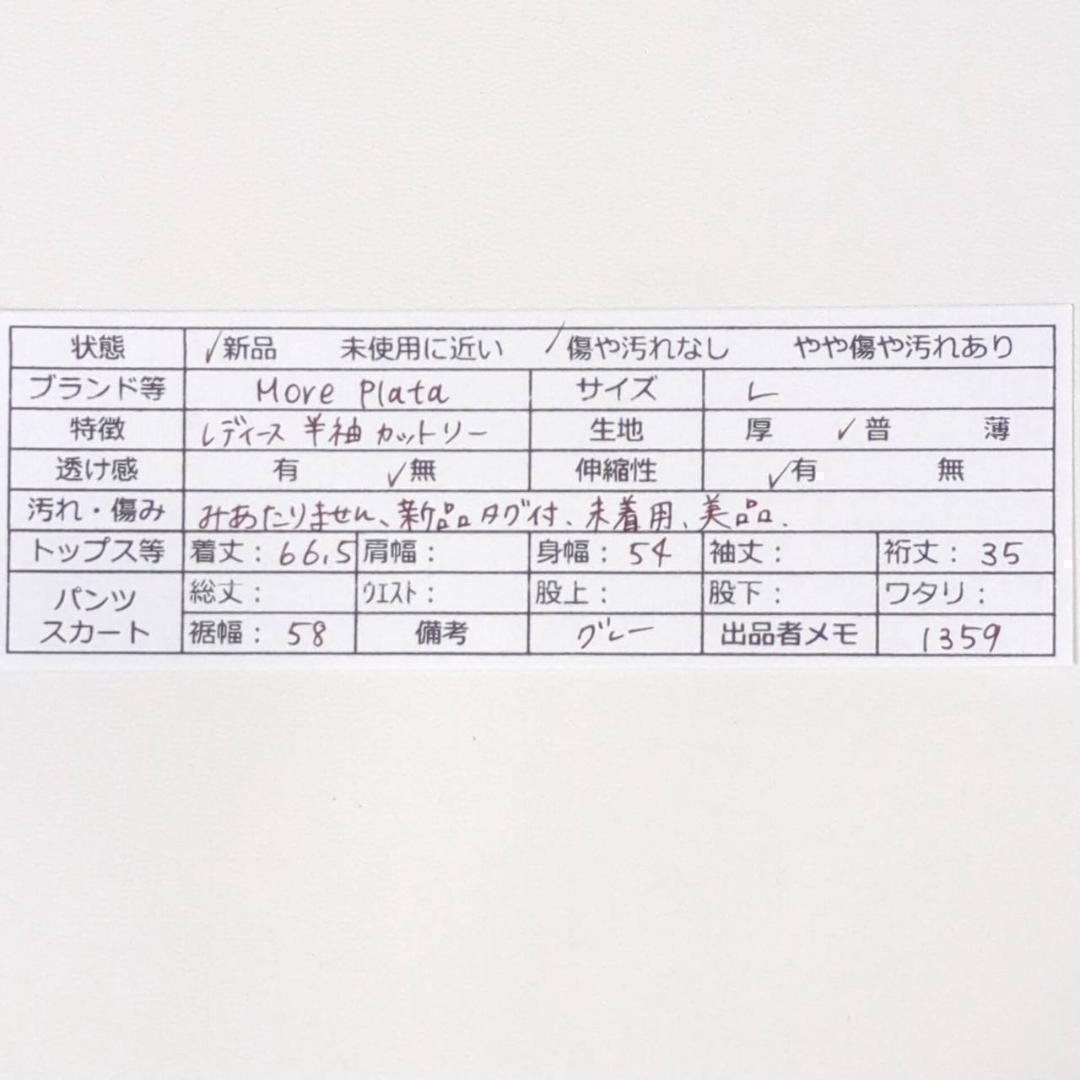 状態 ✓新品 未使用に近い ✓傷や汚れなし やや傷や汚れあり
ブランド等 More Plata サイズ L
特徴 レディース 半袖 カットソー 生地 厚 ✓普 薄
透け感 有 ✓無 伸縮性 ✓有 無
汚れ・傷み みあたりません、新品タグ付、未着用、美品.
トップス等 着丈: 66.5 肩幅: 身幅: 54 袖丈: 裄丈: 35
パンツ スカート 総丈: ウエスト: 股上: 股下: ワタリ:
裾幅: 58 備考 グレー 出品者メモ 1359